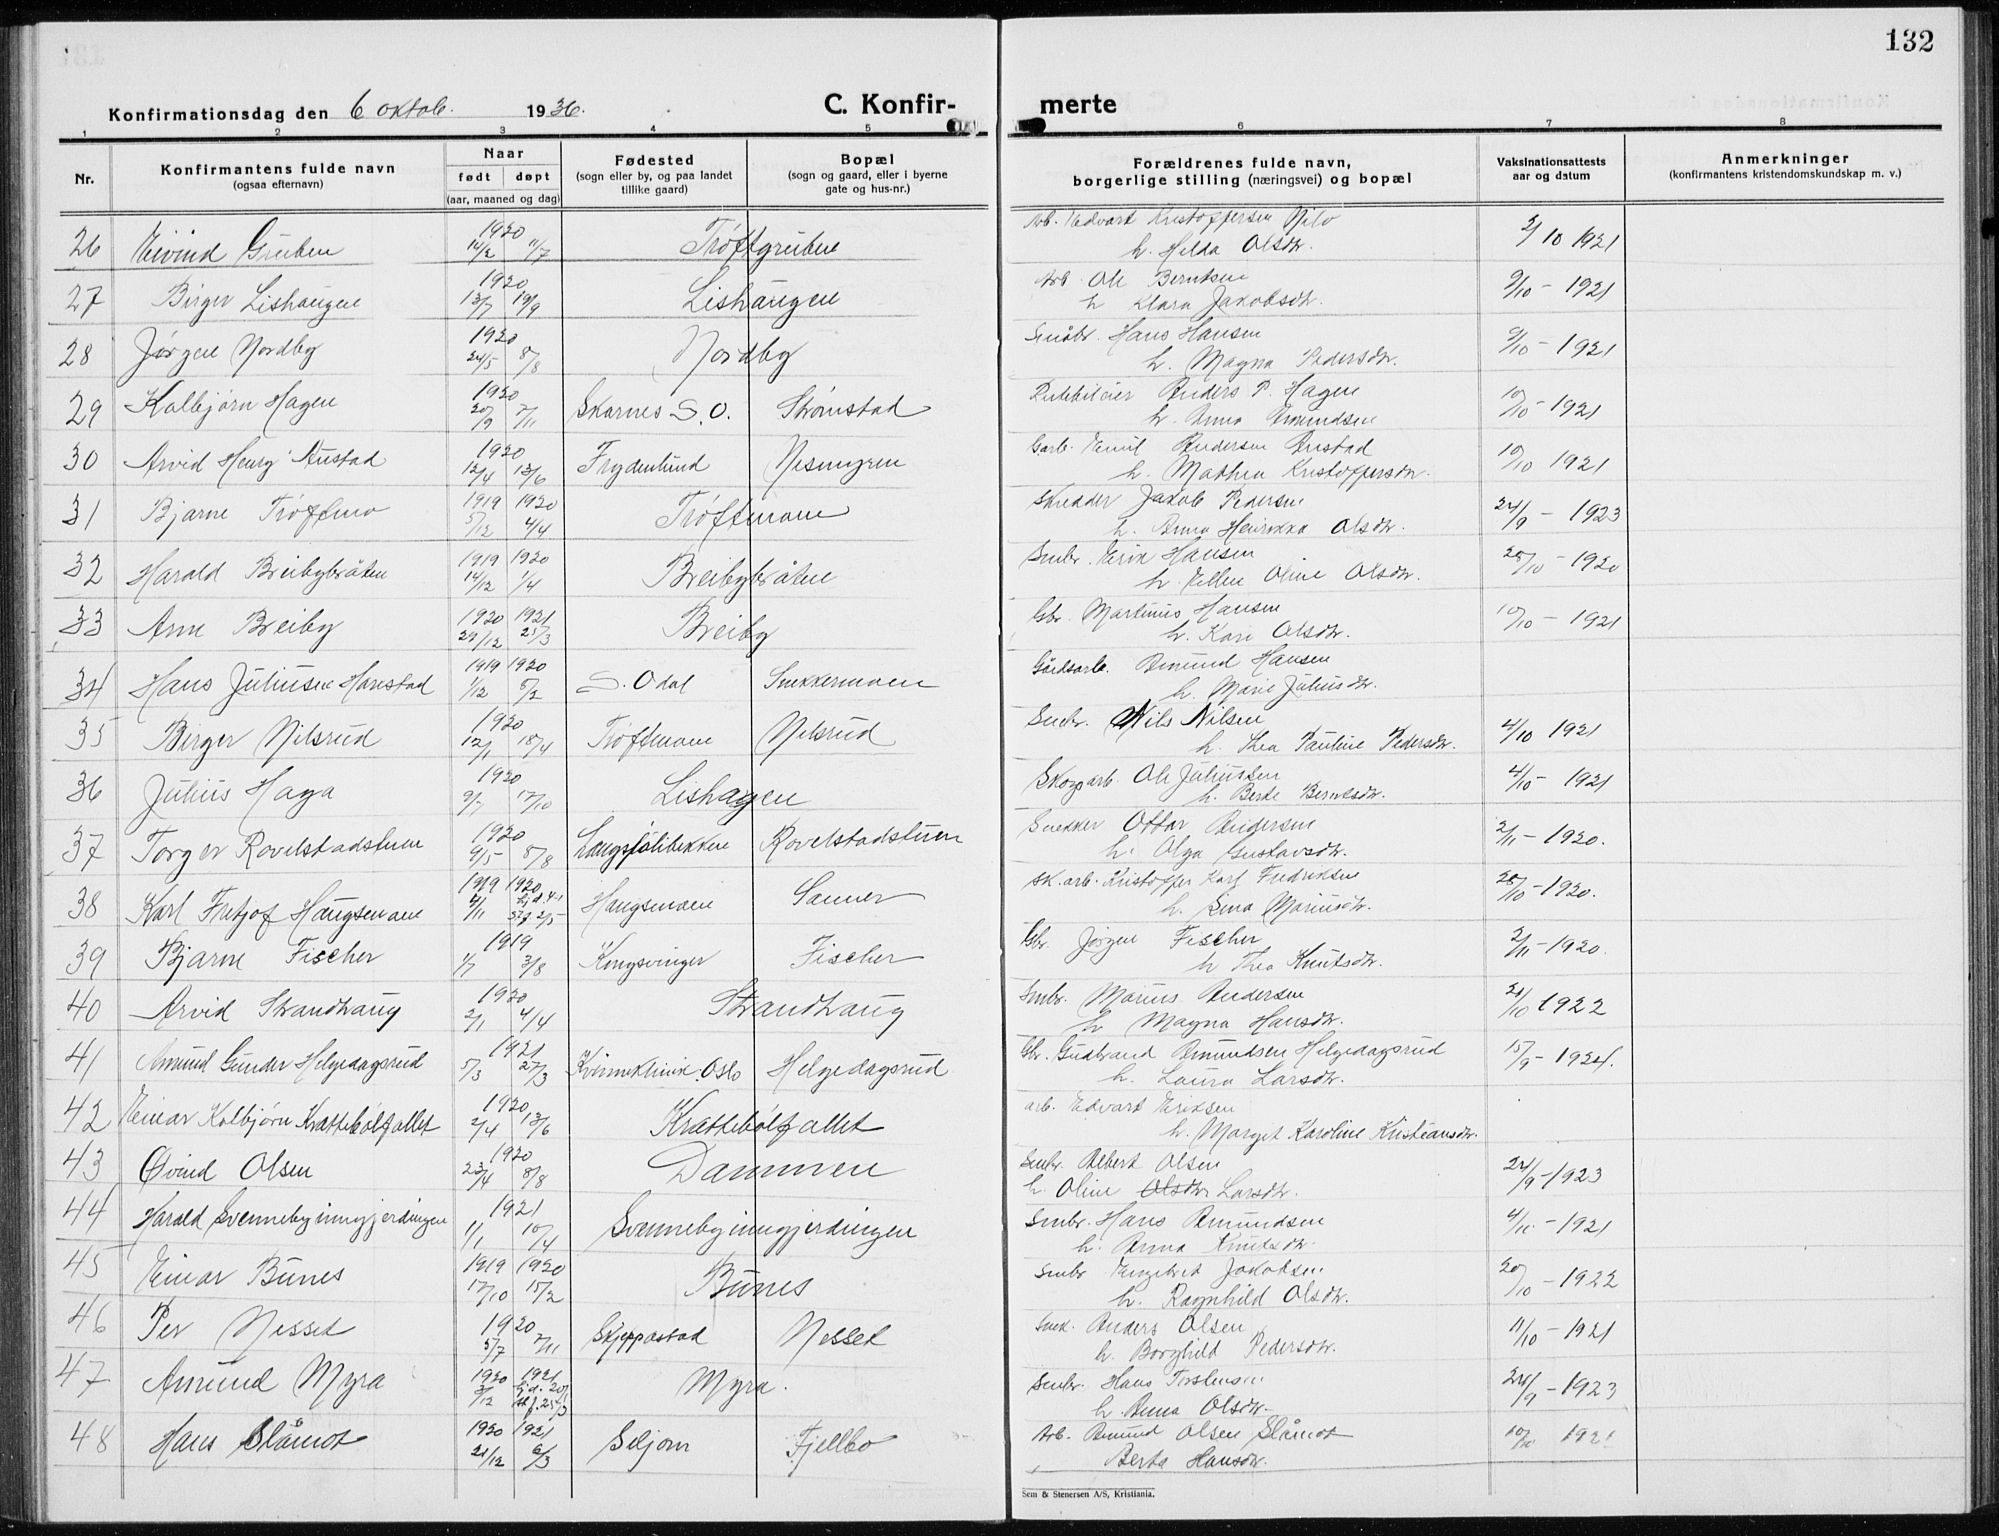 132
Konfirmationsdag den 6 oktob. 1936.
C. Konfir-
merte
1 2 3 4 5 6 7 8
Nr.
Konfirmantens fulde navn
(ogsaa efternavn)
Naar
født døpt
(aar, maaned og dag)
Fødested
(sogn eller by, og paa landet
tillike gaard)
Bopæl
(sogn og gaard, eller i byerne
gate og hus-nr.)
Forældrenes fulde navn,
borgerlige stilling (næringsvei) og bopæl
Vaksinationsattests
aar og datum
Anmerkninger
(konfirmantens kristendomskundskap m. v.)
26 Eivind Gruben 1920 14/2 11/7 Tróftgruben Arb. Edvart Kristoffersen Nilo 10 1921
h. Hilda Olsdtr.
27 Birger Lishaugen 1920 13/7 19/9 Lishaugen Arb. Ole Berntsen 9/10 - 1921
h Klara Jakobsdtr.
28 Jørgen Nordby 1920 24/5 8/8 Nordby Småbr. Hans Hansen 9/10 - 1921
h. Magna Pedersdtr.
29 Kolbjørn Hagen 1920 20/9 7/11 Skarnes S. O. Strømstad Rutebileier Anders P. Hagen 10/10 - 1921
h. Anna Amundsen
30 Arvid Henry Austad 1920 12/4 13/6 Frydenlund Nesmyren Garb. Emil Andersen Austad 10/10 1921
h. Mathea Kristoffersdtr.
31 Bjarne Tróftmo 1919 1920 5/12 4/4 Tróftmoen Skredder Jakob Pedersen 24/9 - 1923
h. Anna Henrikka Olsdtr.
32 Harald Breibybråten 1919 1920 14/12 1/4 Breibybråten Smbr. Erik Hansen 25/10 - 1920
h. Ellen Oline Olsdtr.
33 Arne Breiby 1920 1921 29/12 25/3 Breiby Gbr. Martinus Hansen 10/10 - 1921
h. Kari Olsdtr.
34 Hans Juliusen Harstad 1919 1920 1/12 5/2 S. Odal Snekkermoen Gårdsarb. Amund Hansen
h. Marie Juliusdtr.
35 Birger Nilsrud 1920 12/1 18/4 Tróftmoen Nilsrud Smbr. Nils Nilsen 4/10 1921
h. Thea Pauline Pedersdtr.
36 Julius Haga 1920 9/7 17/10 Lishagen Skogsarb. Ole Juliussen 4/10 - 1921
h. Berte Berntsdtr.
37 Torger Rovelstadstuen 1920 9/5 8/8 Rovelstadstuen Snekker Ottar Andersen 2/11 - 1920.
h. Olga Gustavsdtr.
38 Karl Fritjof Haugsmoen 1919 1920 4/11 Hj.d. 4-1 Stf 2/5 Haugsmoen Sanner sk. arb. Kristoffer Karl Fredriksen 25/10 - 1920.
h. Lina Mariusdtr.
39 Bjarne Fischer 1919 1/7 3/8 Kongsvinger Fischer Gbr. Jørgen Fischer 2/11 - 1920.
h Thea Knutsdtr.
40 Arvid Strandhaug 1920 2/1 4/4 Strandhaug Smbr. Marius Andersen 21/10 1922
h Magna Hansdtr.
41 Amund Gunder Helgedagsrud 1921 5/3 27/3 Kvinneklinik. Oslo Helgedagsrud Gbr. Gudbrand Amundsen Helgedagsrud 15/9 - 1924.
h. Laura Larsdtr.
42 Einar Kolbjørn Krattebólfallet 1920 2/4 13/6 Krattebólfallet arb. Edvart Eriksen
h. Margit Karoline Kristiansdtr.
43 Øivind Olsen 1920 23/4 8/8 Dammen Smbr. Albert Olsen 24/9 - 1923
h. Oline Olsdtr Larsdtr.
44 Harald Svennebyinngjerdingen 1921 1/1 10/4 Svennebyinngjerdingen Smbr. Hans Amundsen 4/10 - 1921
h. Anna Knutsdtr.
45 Einar Bunes 1919 1920 17/10 15/2 Bunes Smbr Engebret Jakobsen 20/10 - 1922
h. Ragnhild Olsdtr.
46 Per Nesset 1920 5/7 7/11 Skjeppastad Nesset Snek. Anders Olsen 11/10 - 1921
h. Borghild Pedersdtr.
47 Amund Myra 1920 1921 3/12 Hj.d. 20/1 Stf. 25/3 Myra. Smbr. Hans Torstensen 24/9 - 1923
h. Anna Olsdtr.
48 Hans Slåmot 1920 1921 21/12 6/3 Seljom Fjellbo Arb. Amund Olsen Slåmot 10/10 1921
Berta Hansdtr.
Sem & Stenersen A/S, Kristiania.